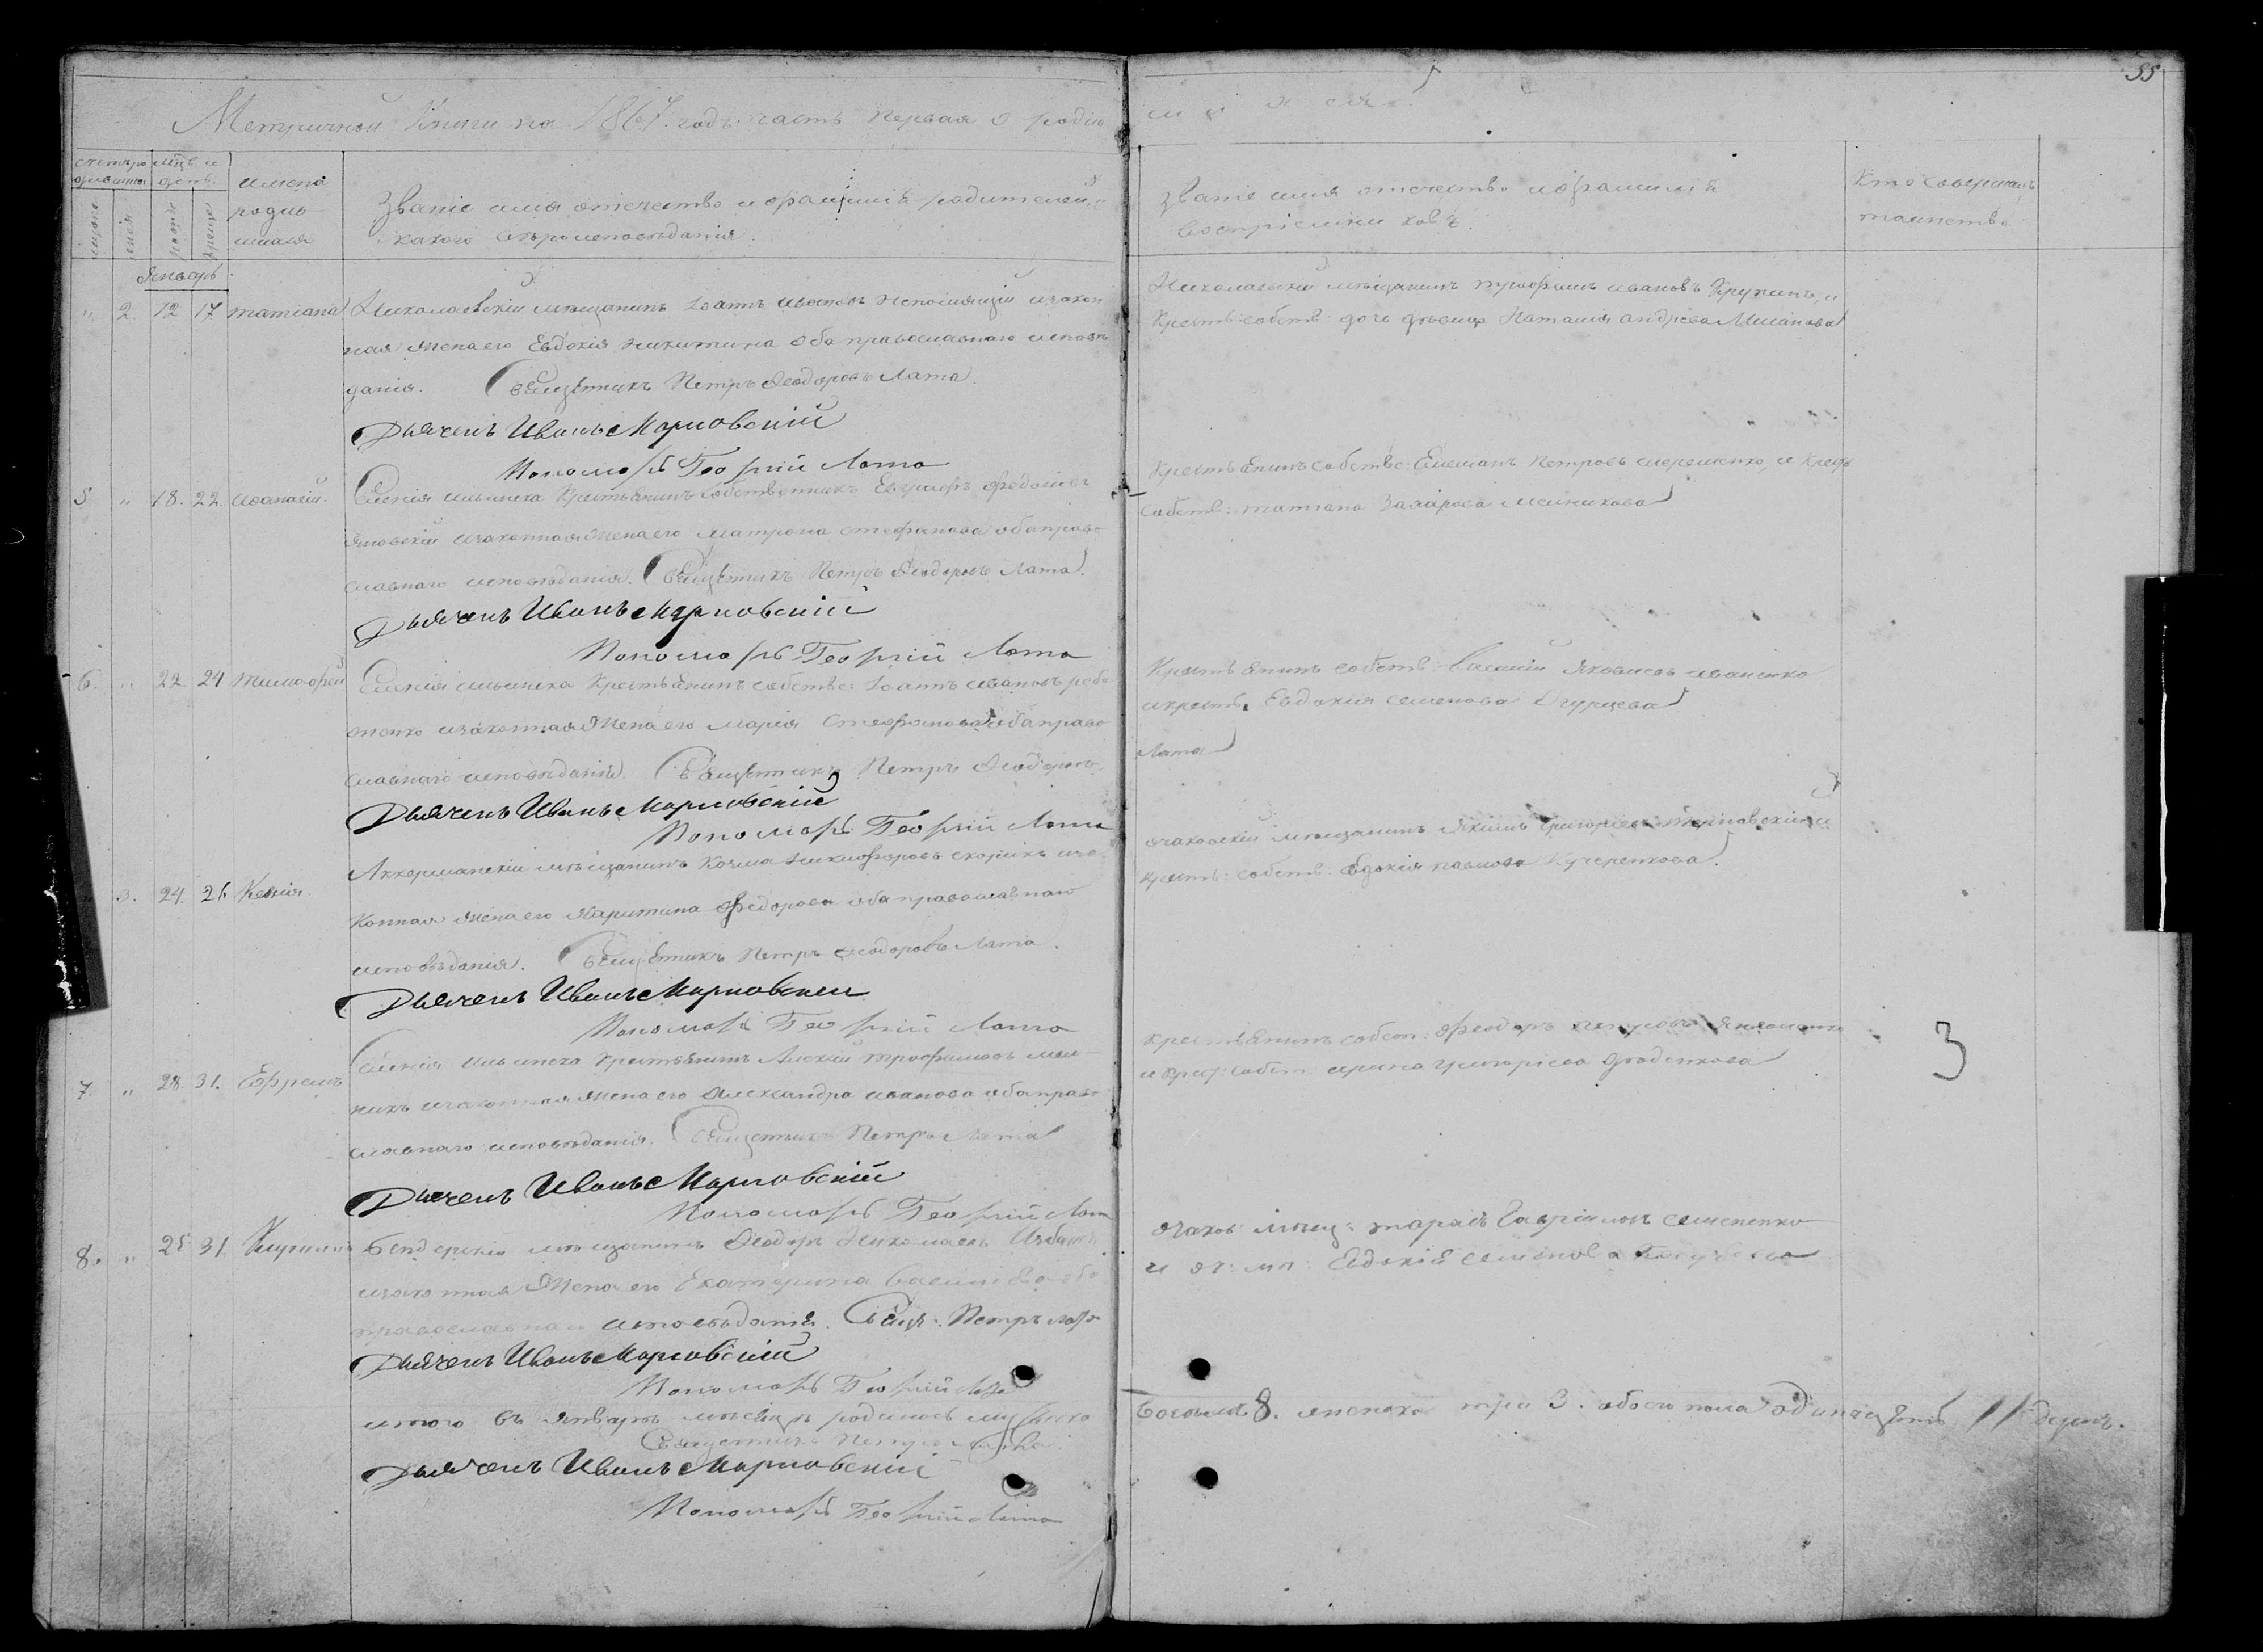 55
Метричной Книги на 1867. годъ. часть первая о родив
шихся.
счетъ ро
дившихся
мѣс. и
день
имена
родив
шихся
Званіе имя, отечество и фамилія родителей, и
какого вѣроисповѣданія.
Званіе имя отечество и фамилія
воспріемниковъ.
Кто совершалъ
таинство
Январь
" 2. 12 17 татіана
Николаевскій мѣщанинъ Іоаннъ Ивановъ и закон
ная жена его Евдокія Никитина оба православнаго исповѣ
данія. Священникъ Петръ Ѳеодоровъ Лата
Дьячекъ Иванъ Марковскій
Пономарь Георгій Лата
Николаевскій мѣщанинъ трофимъ ивановъ Крупинъ, и
Крестъ: собств: дочь дѣвица Наталія андреева
5 " 18. 22.
Селенія ильинска Крестьянинъ собственникъ
и законная жена его матрона стефанова оба право
славнаго исповѣданія. Священникъ Петръ Ѳеодоровъ Лата.
Дьячекъ Иванъ Марковскій
Пономарь Георгій Лата
Крестьянинъ собстве: Емелианъ Петровъ и Крест
собств: татіана Захарова Мельникова
6. " 22 24 тимофей
Селенія ильинска Крестьянинъ собстве: Іоаннъ ивановъ
и законная жена его марія Стефанова оба право
славнаго исповѣданія. Священникъ Петръ Ѳеодоровъ
Лата
Дьячекъ Иванъ Марковскій
Пономарь Георгій Лата
Крестьянинъ собств василій Яковлевъ иваненко
и крестьян. Евдокия семенова Огурцева
" 3. 24. 26 Ксенія.
Аккерманскій мѣщанинъ Козма Никифоровъ и за
Конная жена его Харитина Федорова оба православнаго
исповѣданія. Священникъ Петръ Ѳеодоровъ Лата.
Дьячекъ Иванъ Марковскій
Пономарь Георгій Лата
очаковскій мѣщанинъ Якимъ Григорьевъ Терновскій и
крестъ: собств: Евдокія павлова Кучеренкова.
7. " 28. 31. Ефремъ
Селенія Ильинска Крестьянинъ Алексій трофимовъ мель
никъ и законная жена его Александра иванова оба право
славнаго исповѣданія. Священникъ Петръ Лата
Дьячекъ Иванъ Марковскій
Пономарь Георгій Лата
крестьянинъ собст: Феодоръ
и крест: собст: ирина григоріева
3
8. " 25 31
Бендерскій мѣщанинъ Ѳеодоръ Николаевъ
и законная жена его Екатерина Василіева оба
православнаго исповѣданія. Свящ: Петръ Лата
Дьячекъ Иванъ Марковскій
Пономарь Георгій Лата
очаков: мѣщ: тарасъ Гавріиловъ семененко
и оч: мѣ: Евдокія семенова
итого въ январѣ мѣсяцѣ родилось мужеска
восемь 8. женска три 3. обоего пола одинадцять 11 душъ.
Священникъ Петръ Лата
Дьячекъ Иванъ Марковскій
Пономарь Георгій Лата